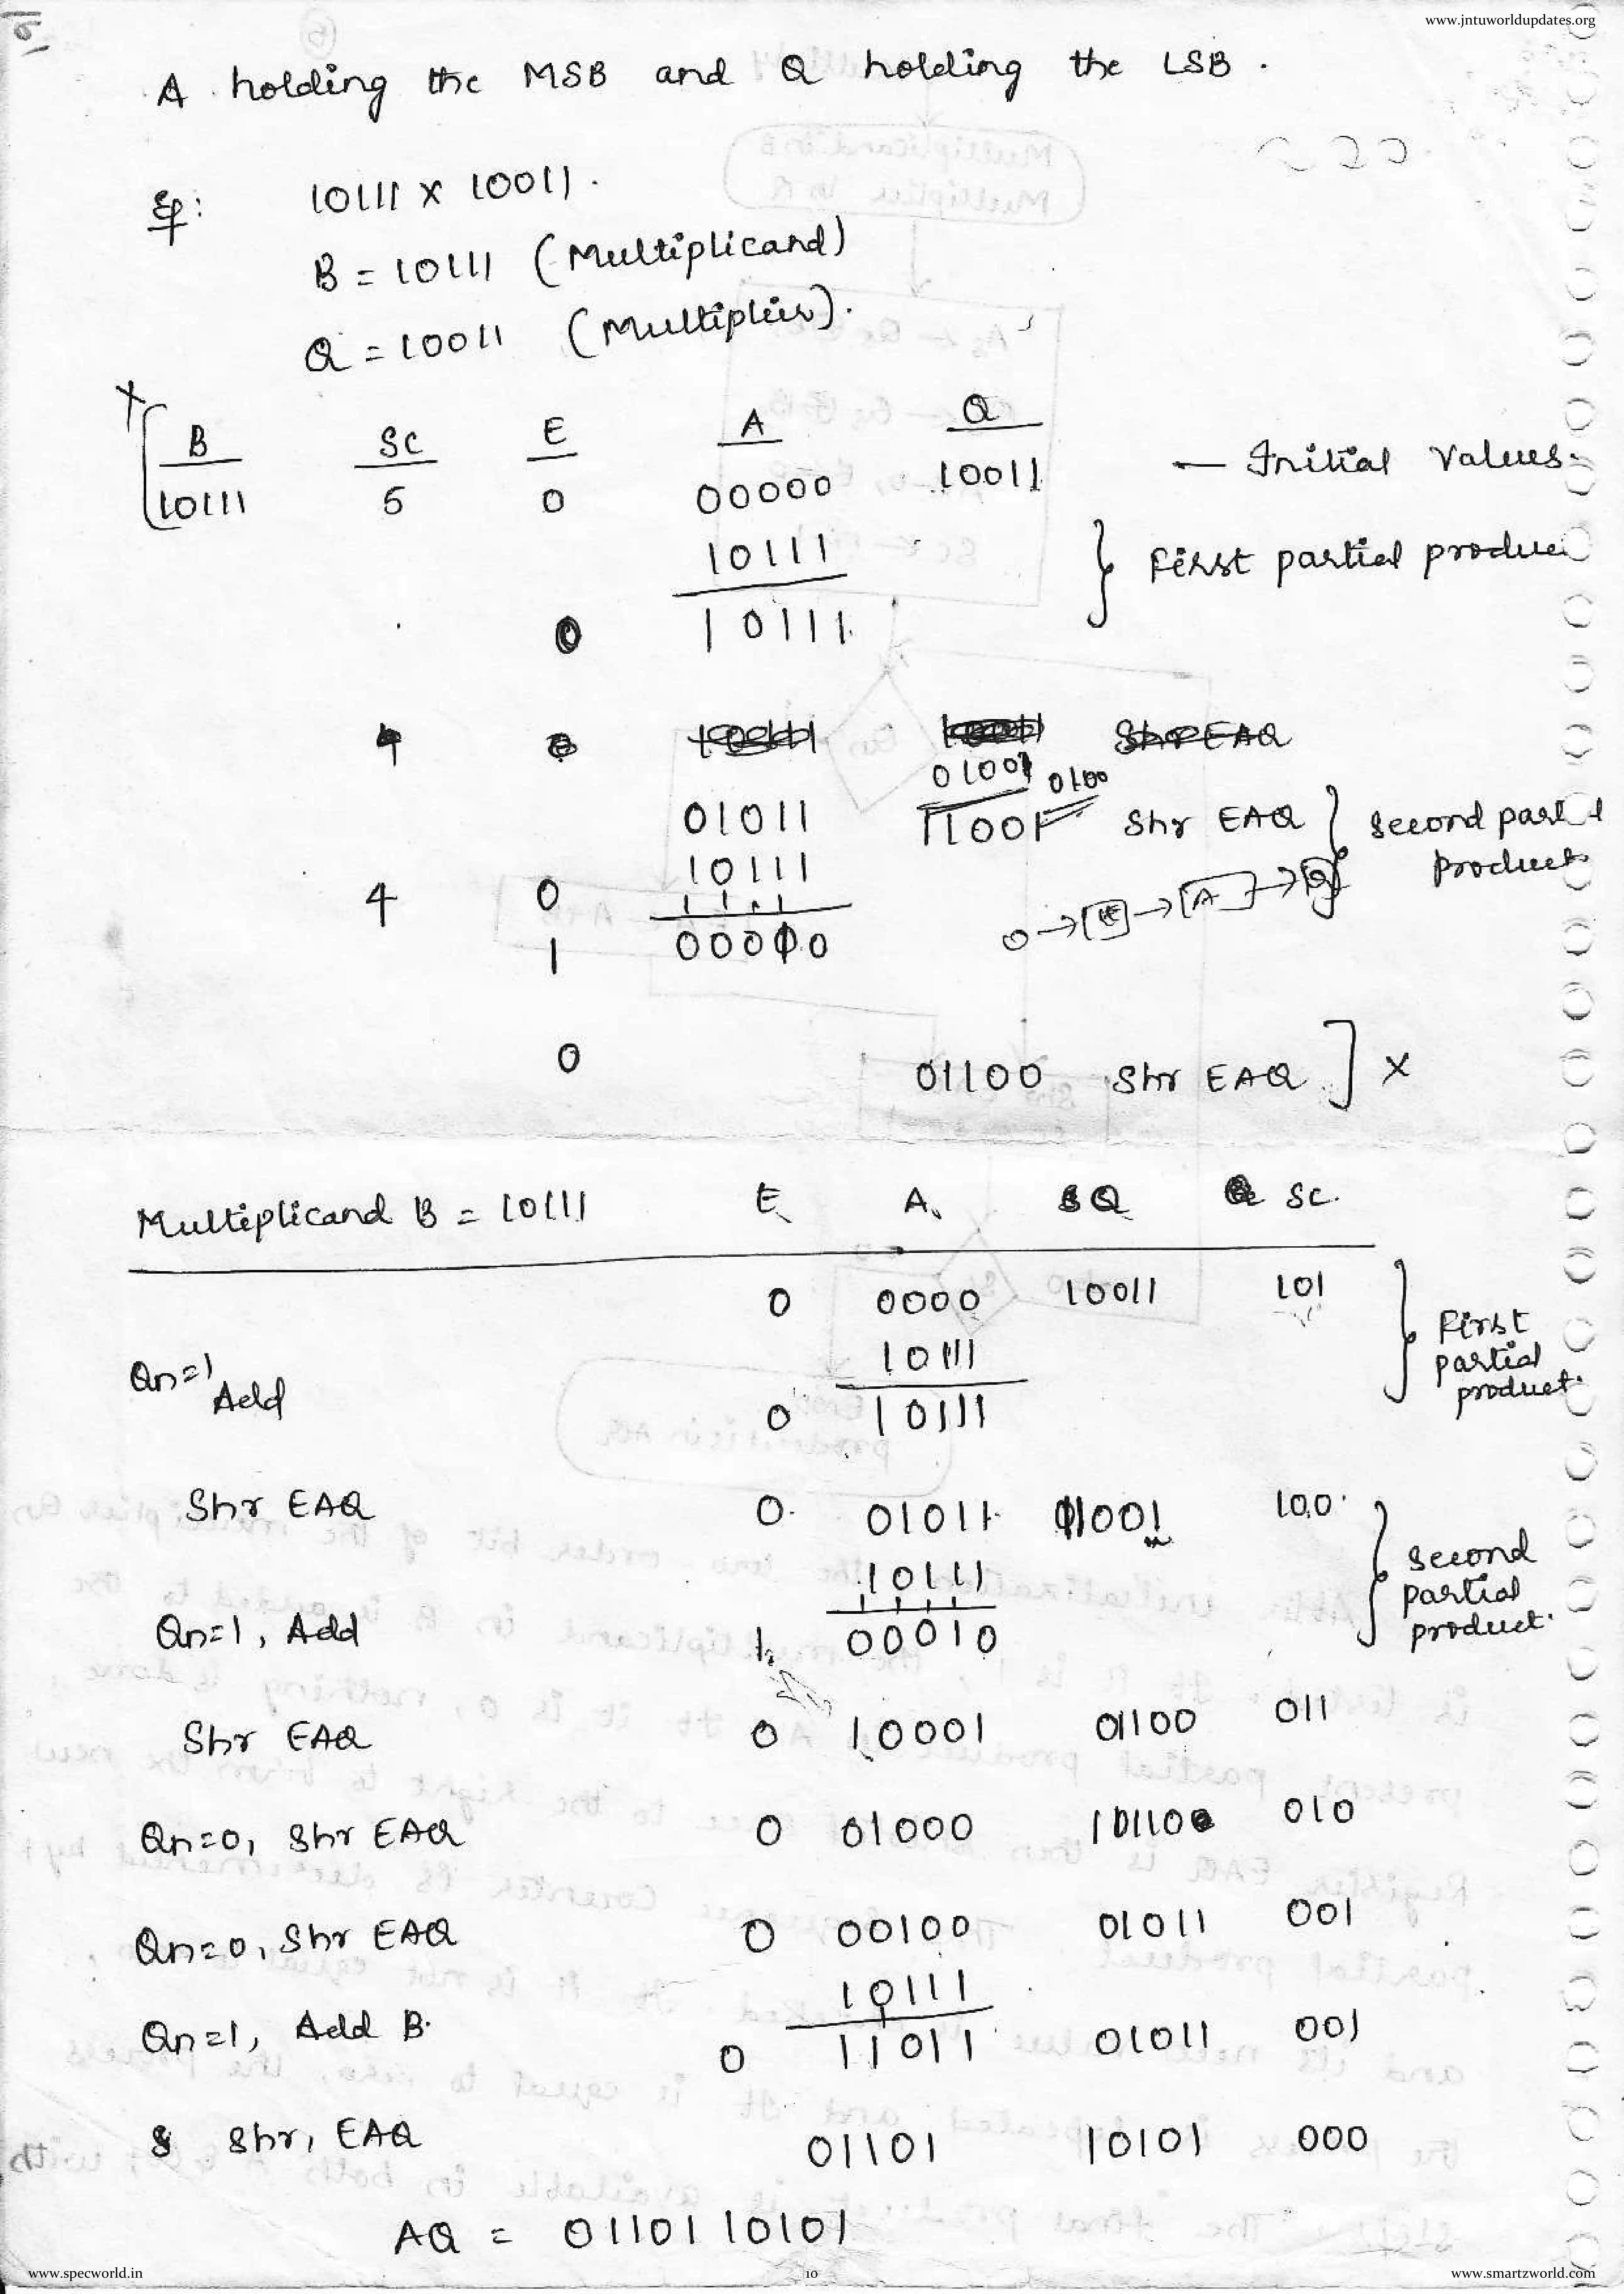 www.jntuworldupdates.org
A holding the MSB and Q holding the LSB.
Eg: 10111 X 10011.
B = 10111 (Multiplicand)
Q = 10011 (Multiplier).
B SC E A Q
10111 5 0 00000 10011 — Initial Values.
10111 } First partial produc
0 10111
4 Shr EAQ
01001 0100
01011 11001 Shr EAQ } Second part
10111 product
4 0 0 → [E] → [A] → [Q]
1 00010
0 01100 Shr EAQ ] X
Multiplicand B = 10111 E A Q SC.
0 0000 10011 101 } First partial product.
10111
Qn=1 Add 0 10111
Shr EAQ 0 01011 11001 100 } Second partial product.
10111
Qn=1, Add 1 00010
Shr EAQ 0 10001 01100 011
Qn=0, Shr EAQ 0 01000 10110 010
Qn=0, Shr EAQ 0 00100 01011 001
10111
Qn=1, Add B. 0 11011 01011 001
Shr, EAQ 01101 10101 000
AQ = 0110110101
www.specworld.in 10 www.smartzworld.com